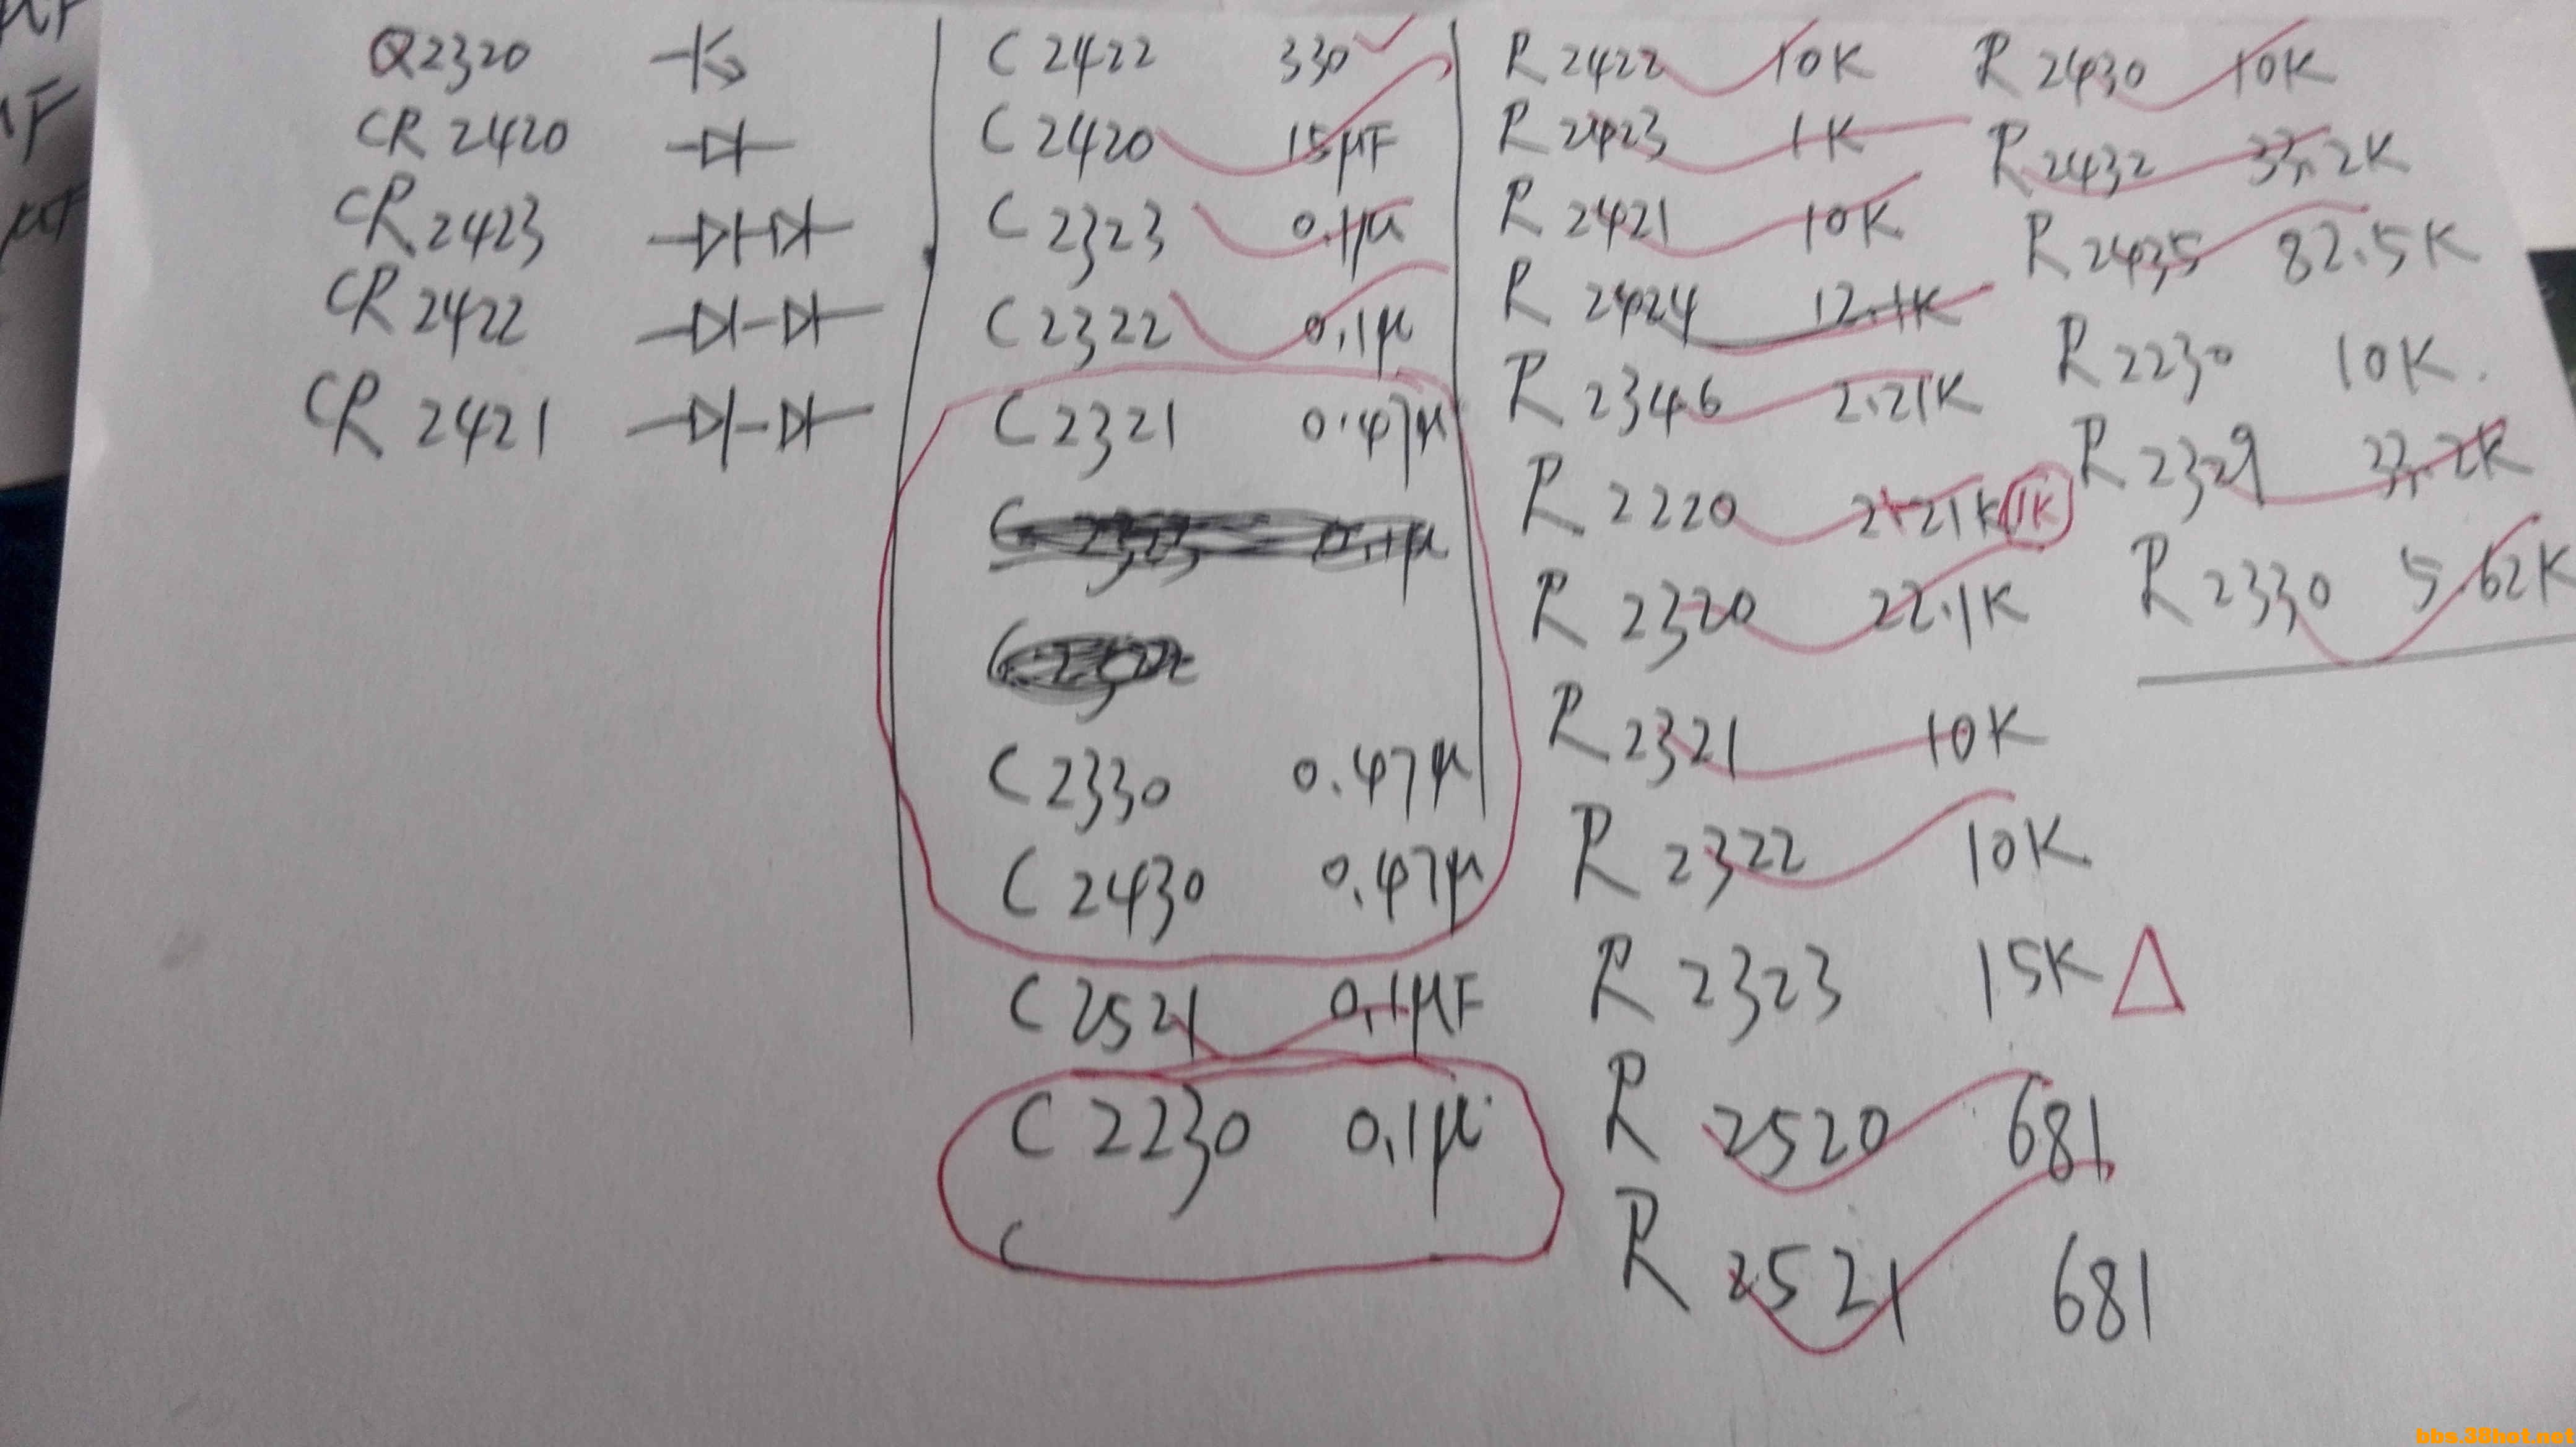 Q2320
CR2420
CR2423
CR2422
CR2421
C2422 330
C2420 15μF
C2323 0.1μ
C2322 0.1μ
C2321 0.47μ
C2330 0.47μ
C2430 0.47μ
C2521 0.1μF
C2230 0.1μ
C
R2422 10K
R2423 1K
R2421 10K
R2424 12.1K
R2346 2.21K
R2220 2.21K 1K
R2320 22.1K
R2321 10K
R2322 10K
R2323 15K
R2520 681
R2521 681
R2430 10K
R2432 33.2K
R2435 82.5K
R2230 10K
R2329 33.2K
R2330 5.62K
μF
μF
μF
bbs.38hot.net